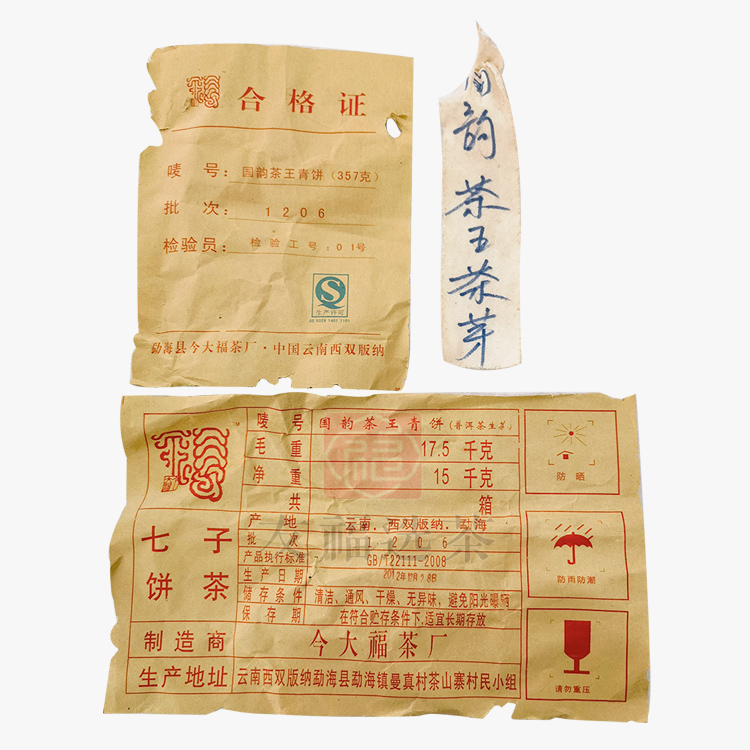 合格证
唛 号: 国韵茶王青饼(357克)
批 次: 1206
检验员: 检验工号:01号
生产许可
勐海县今大福茶厂·中国云南西双版纳
国韵茶王茶芽
唛 号 国韵茶王青饼(普洱茶生茶)
毛 重 17.5 千克
净 重 15 千克
共 箱
产 地 云南.西双版纳.勐海
批 次 1206
产品执行标准 GB/T22111-2008
生产日期
储存条件 清洁、通风、干燥、无异味、避免阳光曝晒
保存期 在符合贮存条件下,适宜长期存放
七子
饼茶
制造商 今大福茶厂
生产地址 云南西双版纳勐海县勐海镇曼真村茶山寨村民小组
防晒
防雨防潮
请勿重压